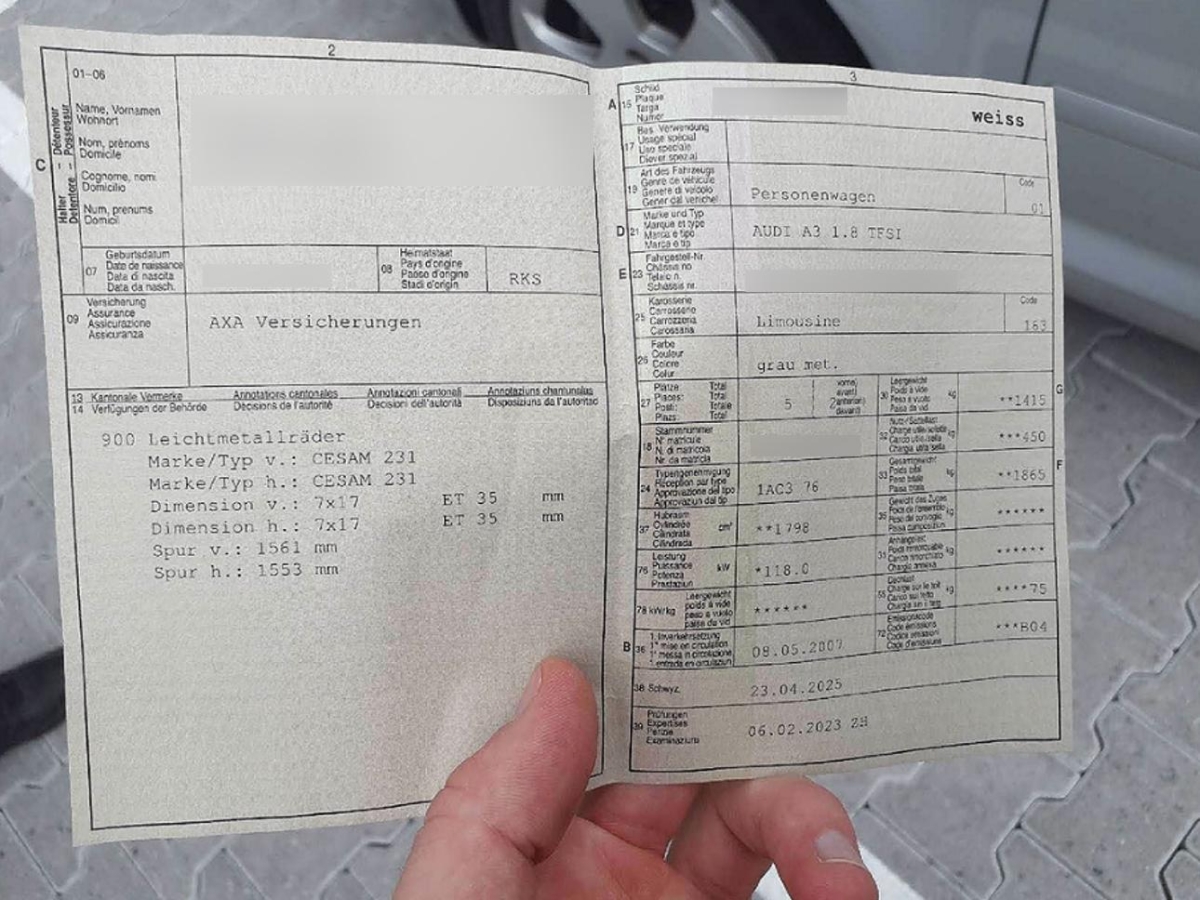 2
01-06
Détenteur
Possessur
C
Halter
Detentore
Name, Vornamen
Wohnort
Nom, prénoms
Domicile
Cognome, nomi
Domicilio
Num, prenums
Domicil
07
Geburtsdatum
Date de naissance
Data di nascita
Data da nasch.
08
Heimatstaat
Pays d'origine
Paese d'origine
Stadi d'origin
RKS
09
Versicherung
Assurance
Assicurazione
Assicuranza
AXA Versicherungen
13 Kantonale Vermerke Annotations cantonales Annotazioni cantonali Annotaziuns chantunalas
14 Verfügungen der Behörde Décisions de l'autorité Decisioni dell'autorità Disposiziuns da l'autoritad
900 Leichtmetallräder
Marke/Typ v.: CESAM 231
Marke/Typ h.: CESAM 231
Dimension v.: 7x17 ET 35 mm
Dimension h.: 7x17 ET 35 mm
Spur v.: 1561 mm
Spur h.: 1553 mm
3
A 15
Schild
Plaque
Targa
Numer
weiss
17
Bes. Verwendung
Usage spécial
Uso speciale
Diever spezial
19
Art des Fahrzeugs
Genre de véhicule
Genere di veicolo
Gener dal vehichel
Personenwagen
Code
01
D 21
Marke und Typ
Marque et type
Marca e tipo
Marca e tip
AUDI A3 1.8 TFSI
E 23
Fahrgestell-Nr.
Châssis no
Telaio n.
Schassis nr.
25
Karosserie
Carrosserie
Carrozzeria
Carossaria
Limousine
Code
163
26
Farbe
Couleur
Colore
Colur
grau met.
27
Plätze: Total
Places: Total
Posti: Totale
Plazs: Total
5
vorne/
avant/
30
Leergewicht
Poids à vide
Peso a vuoto
Paisa da vid
kg
**1415
G
18
Stammnummer
N° matricule
N. di matricola
Nr. da matricla
Charge utile/sellette
kg
***450
24
Typengenehmigung
Réception par type
Approvazione del tipo
Approvaziun dal tip
1AC3 76
33
Gesamtgewicht
Poids total
Peso totale
Paisa totala
kg
**1865
F
37
Hubraum
Cylindrée
Cilindrata
Cilindrada
cm³
**1798
35
Gewicht des Zuges
kg
******
76
Leistung
Puissance
Potenza
Prestaziun
kW
*118.0
31
Anhängelast
kg
******
78 kW/kg
Leergewicht
poids à vide
peso a vuoto
paisa da vid
******
55
Dachlast
Charge sur le toit
kg
****75
B 36
1. Inverkehrsetzung
1re mise en circulation
1a messa in circolazione
1. entrada en circulaziun
08.05.2007
72
Emissionscode
Code émissions
Codice emissioni
Code d'emissiuns
***B04
38 Schwyz,
23.04.2025
39
Prüfungen
Expertises
Perizie
Examinaziuns
06.02.2023 ZH